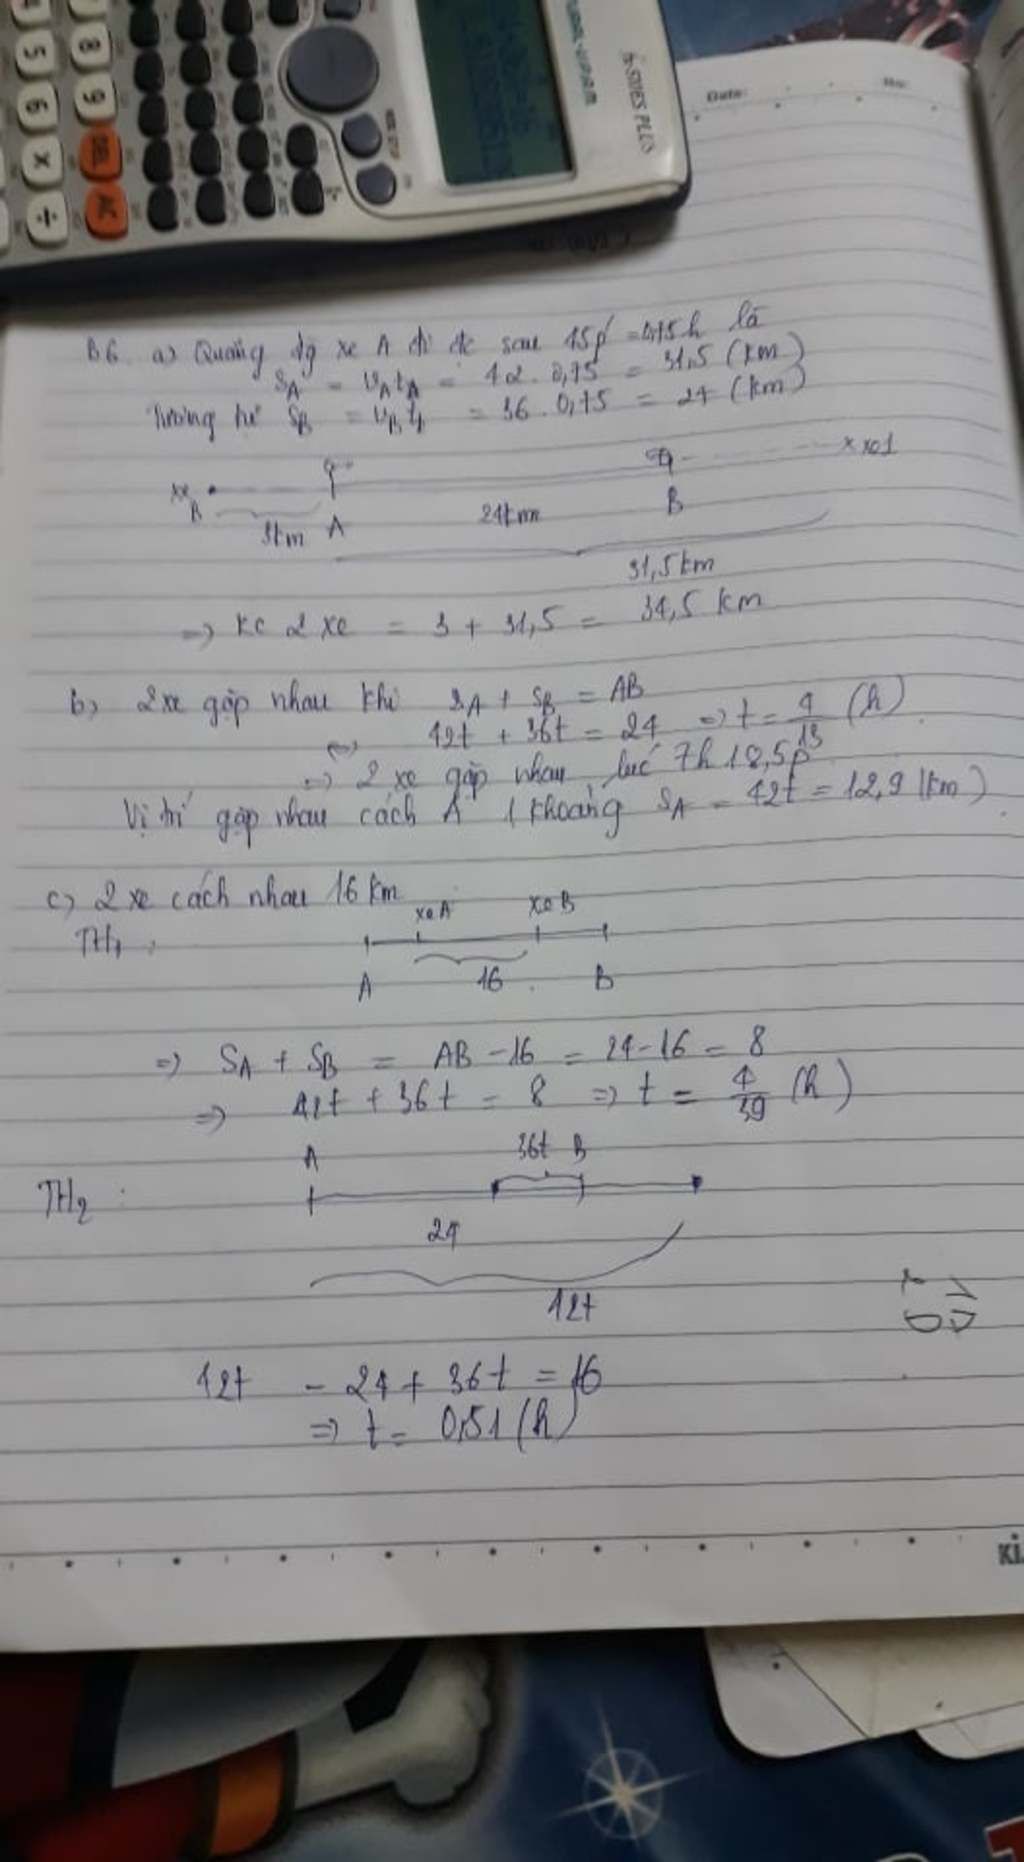 5
8
6
9
DEL
x
÷
AC
ES PLUS
Date:
No:
B6. a) Quãng đg xe A đi đc sau 45p' = 0,75h là
S_A = v_A t_A = 42 . 0,75 = 31,5 (km)
Tương tự S_B = v_B t_1 = 36 . 0,75 = 27 (km)
xe B
A
B
x xe1
3km
24km
31,5km
=> KC 2 xe = 3 + 31,5 = 34,5 km
b) 2 xe gặp nhau khi S_A + S_B = AB
<=> 42t + 36t = 24 => t = 4/13 (h)
=> 2 xe gặp nhau lúc 7h18,5p
Vị trí gặp nhau cách A 1 khoảng S_A = 42t = 12,9 (km)
c) 2 xe cách nhau 16 km
TH1:
xe A
xe B
A
16
B
=> S_A + S_B = AB - 16 = 24 - 16 = 8
=> 42t + 36t = 8 => t = 4/39 (h)
TH2:
A
36t
B
24
42t
42t - 24 + 36t = 16
=> t = 0,51 (h)